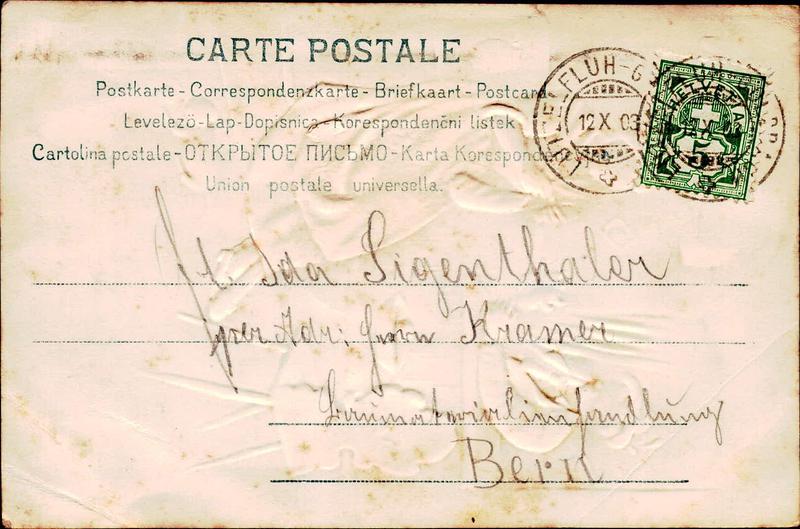 CARTE POSTALE
Postkarte - Correspondenzkarte - Briefkaart - Postcard
Levelezö-Lap-Dopisnica-Korespondenčni listek
Cartolina postale-ОТКРЫТОЕ ПИСЬМО-Karta Korespondenc
Union postale universella.
LÜTZELFLUH-G
12 X 03
HELVETIA
5
Frl. Ida Sigenthaler
per Adr: Herrn Kramer
Baumaterialienhandlung
Bern